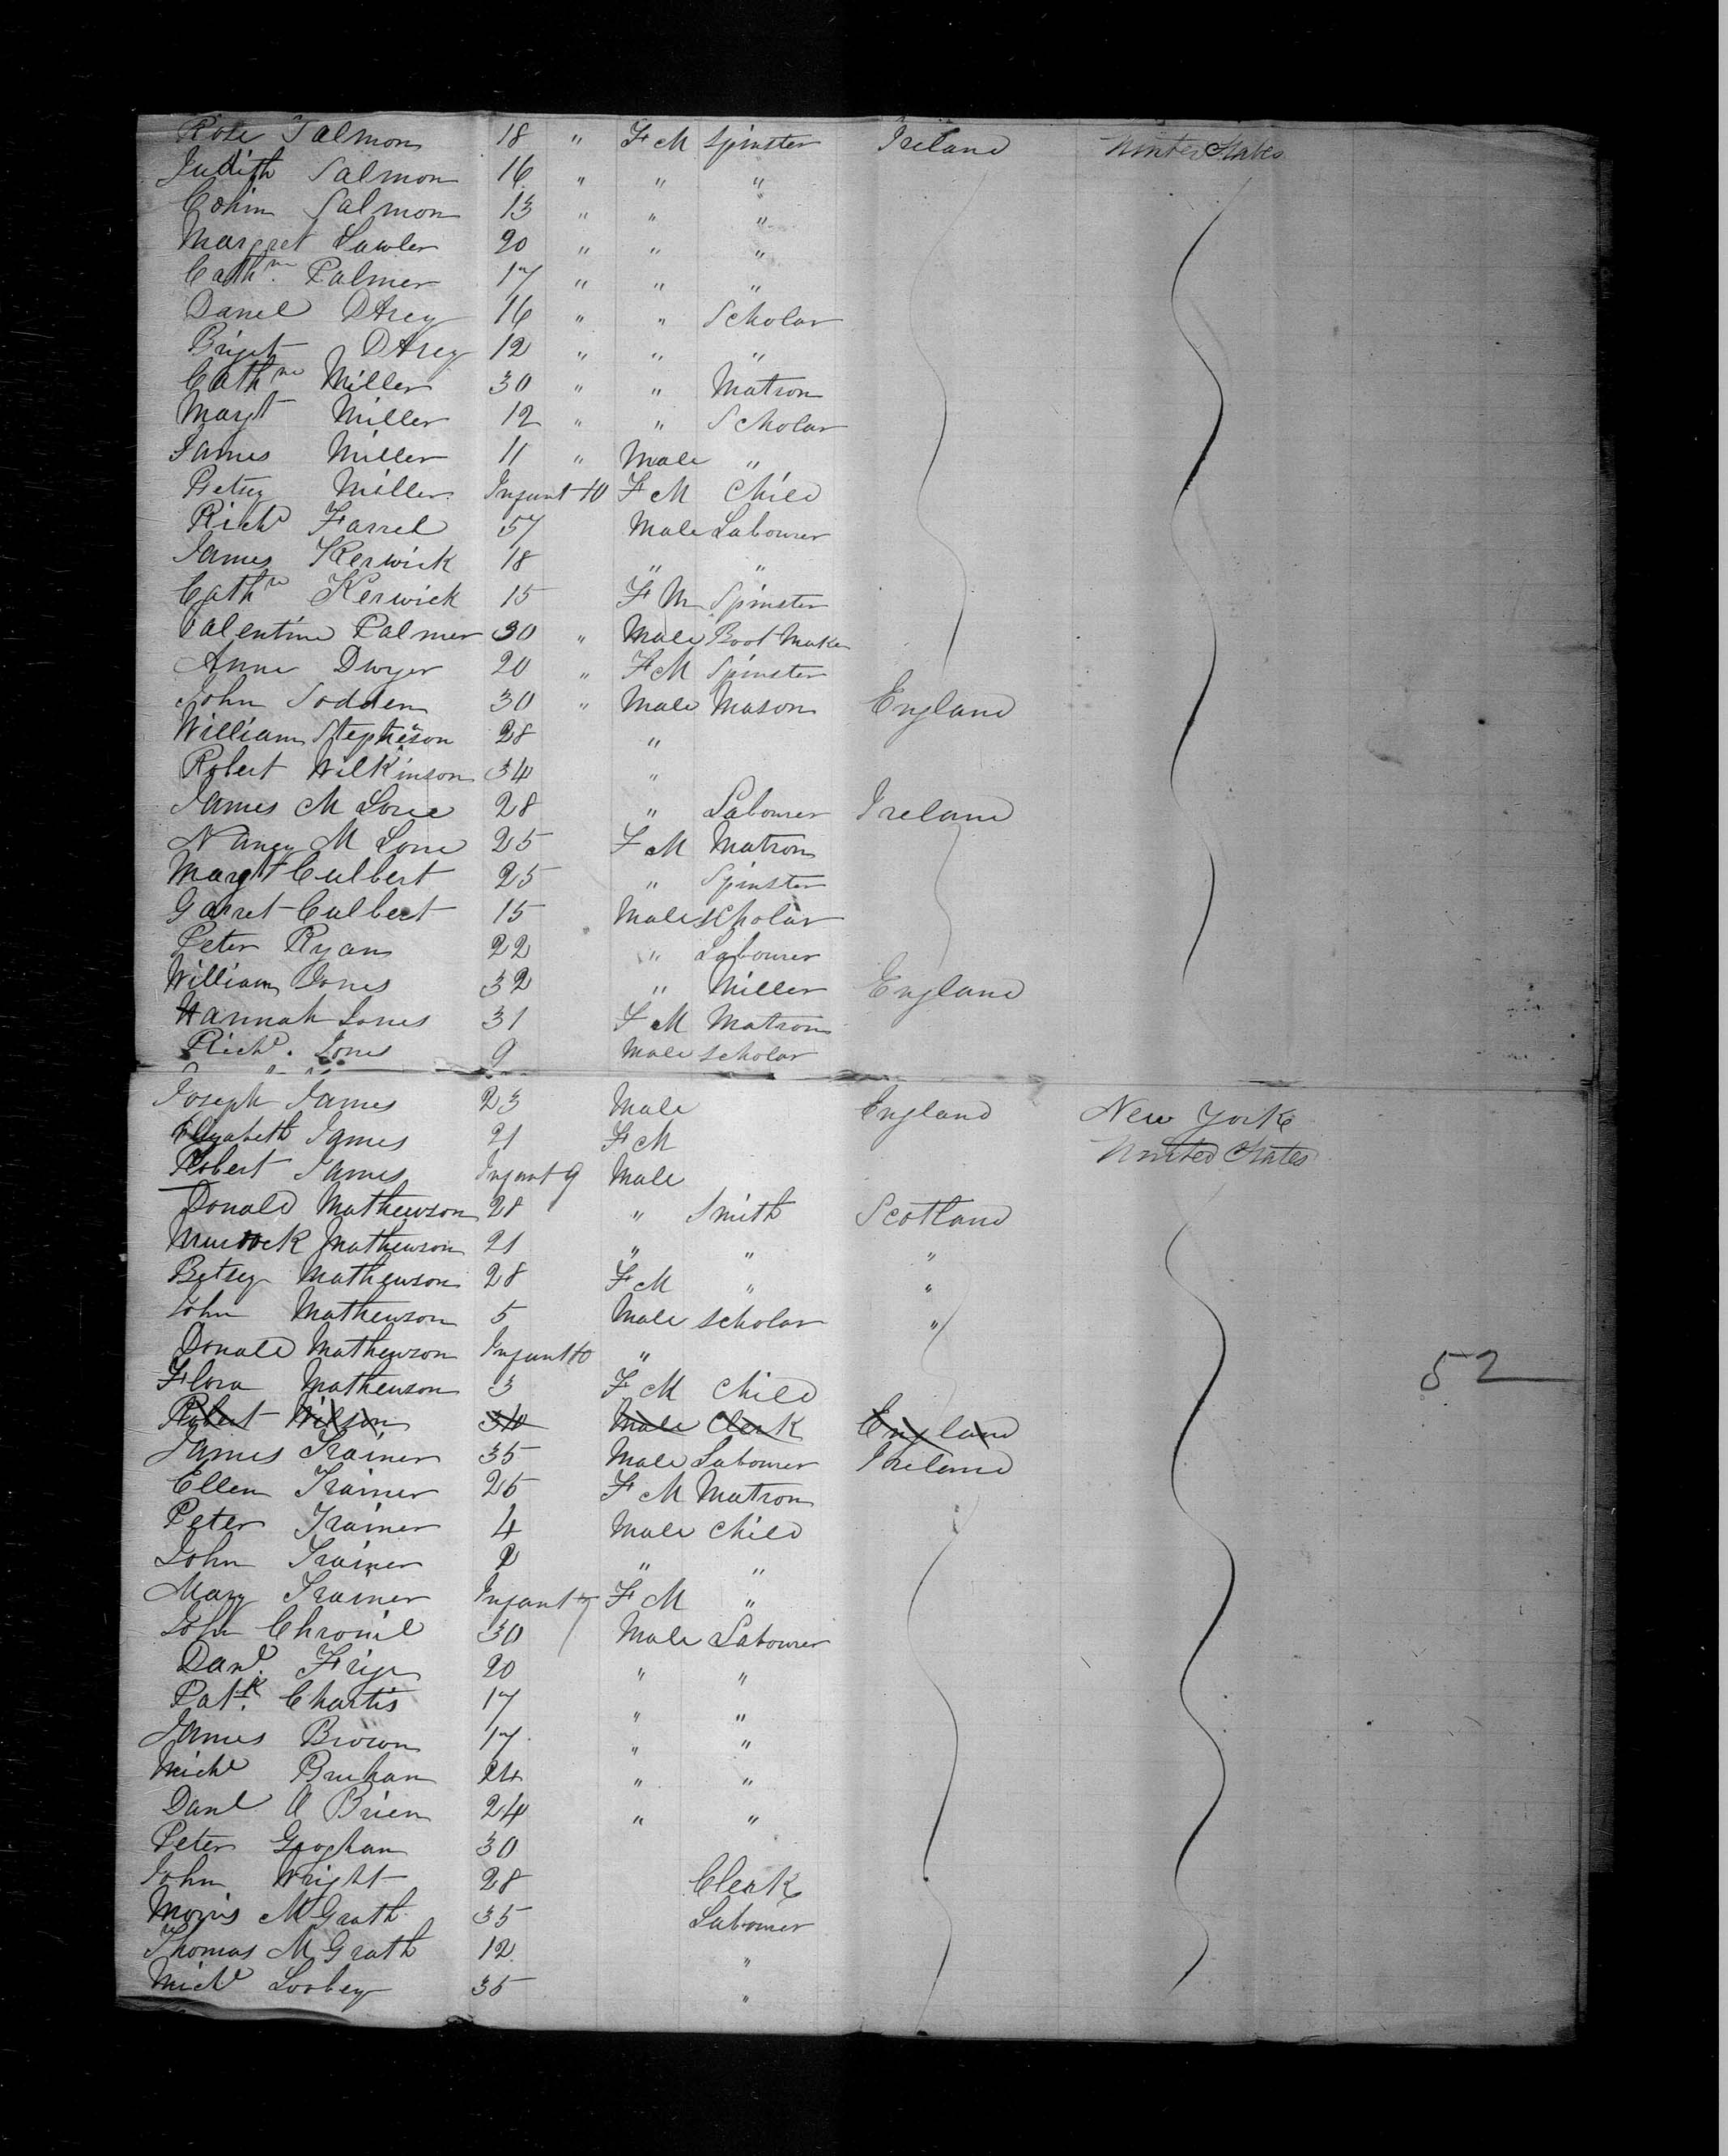 Rose Salmon 18 " F M Spinster Ireland United States
Judith Salmon 16 " " "
Salmon 13 " " "
Margret Lawler 20 " " "
Cathne. Palmer 17 " " "
Danel DArcy 16 " " Scholar
Briget DArcy 12 " " "
Cathne Miller 30 " " Matron
Margt Miller 12 " " Scholar
James Miller 11 " Male "
Betsey Miller Infant 10 F M Child
Richd Farrel 57 Male Labourer
James Kerwick 18 " "
Cathne Kerwick 15 F M Spinster
Valentine Palmer 30 " Male Boot Maker
Anne Dwyer 20 " F M Spinster
John Sodden 30 " Male Mason England
William Stepheson 28 "
Robert Wilkinson 34 "
James M 28 " Labourer Ireland
Nancy M 25 F M Matron
Margt Culbert 25 " Spinster
Garret Culbert 15 Male Scholar
Peter Ryan 22 " Labourer
William Jones 32 " Miller England
Hannah Jones 31 F M Matron
Richd. Jones 9 Male Scholar
Joseph James 23 Male England New York
Elizabeth James 21 F M United States
Robert James Infant 9 Male
Donald Mathewson 28 " Smith Scotland
Murdock Mathewson 21 " " "
Betsey Mathewson 28 F M " "
John Mathewson 5 Male Scholar "
Donald Mathewson Infant 10 "
52
Flora Mathewson 3 F M Child
Robert Wilson 30 Male Clerk England
James Trainer 35 Male Labourer Ireland
Ellen Trainer 25 F M Matron
Peter Trainer 4 Male Child
John Trainer 2 " "
Mary Trainer Infant 7 F M "
John 30 Male Labourer
Danl. 20 " "
Patk. Chartis 17 " "
James Brown 17 " "
Michl 24 " "
Danl O Brien 24 " "
Peter Groghan 30
John Wright 28 Clerk
Morris M Grath 35 Labourer
Thomas M Grath 12 "
Michl Loobey 35 "